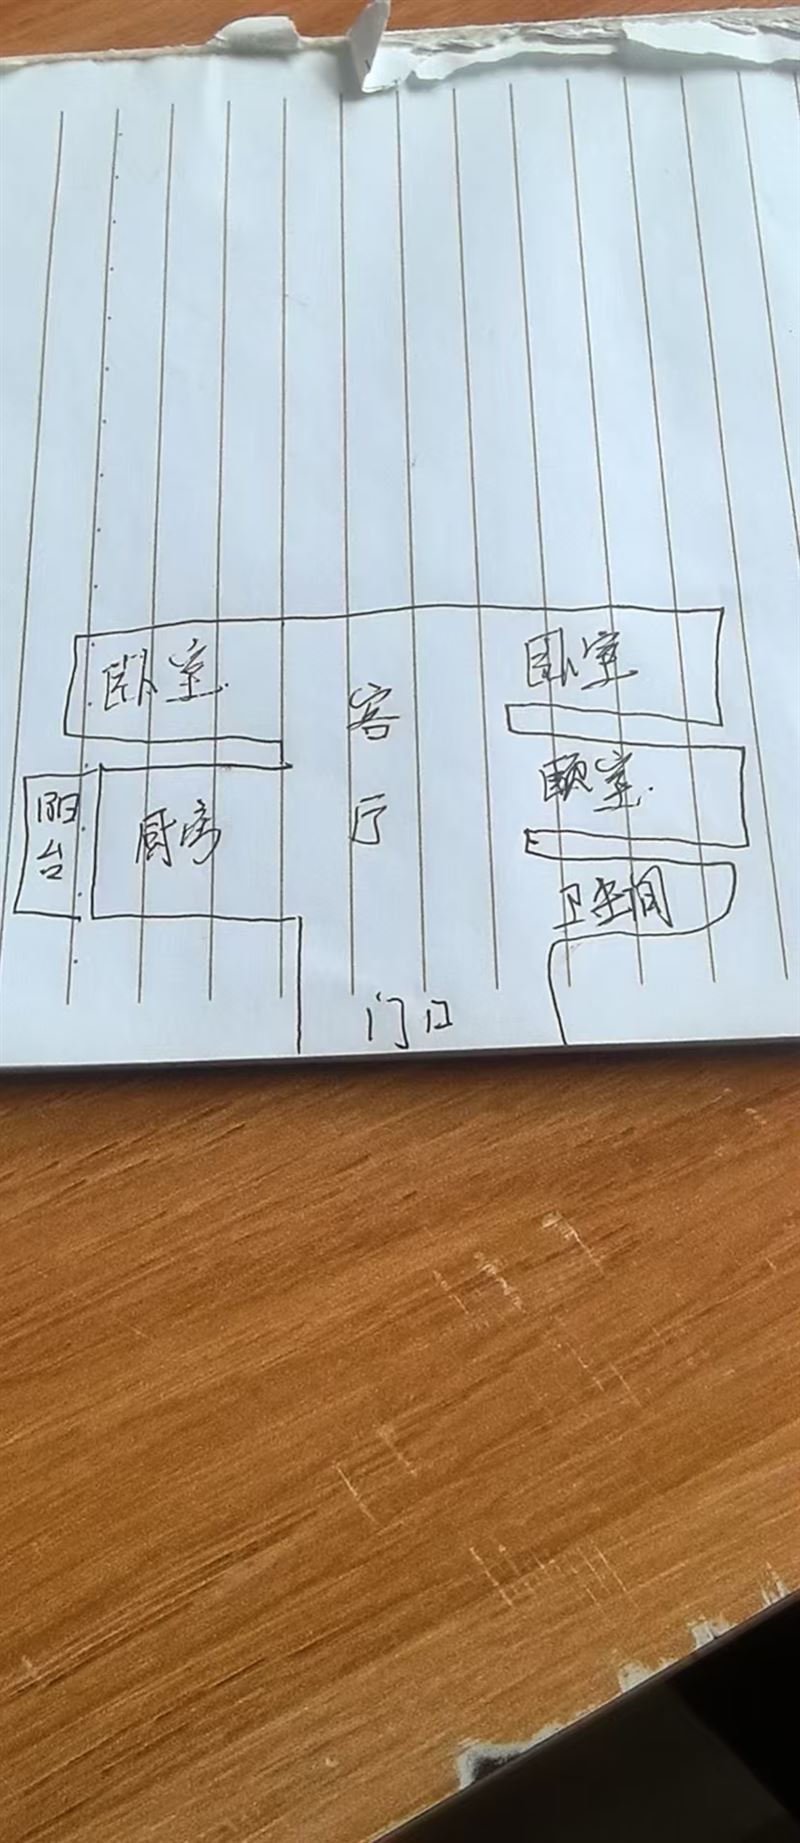 卧室
客厅
卧室
阳台
厨房
卧室
卫生间
门口